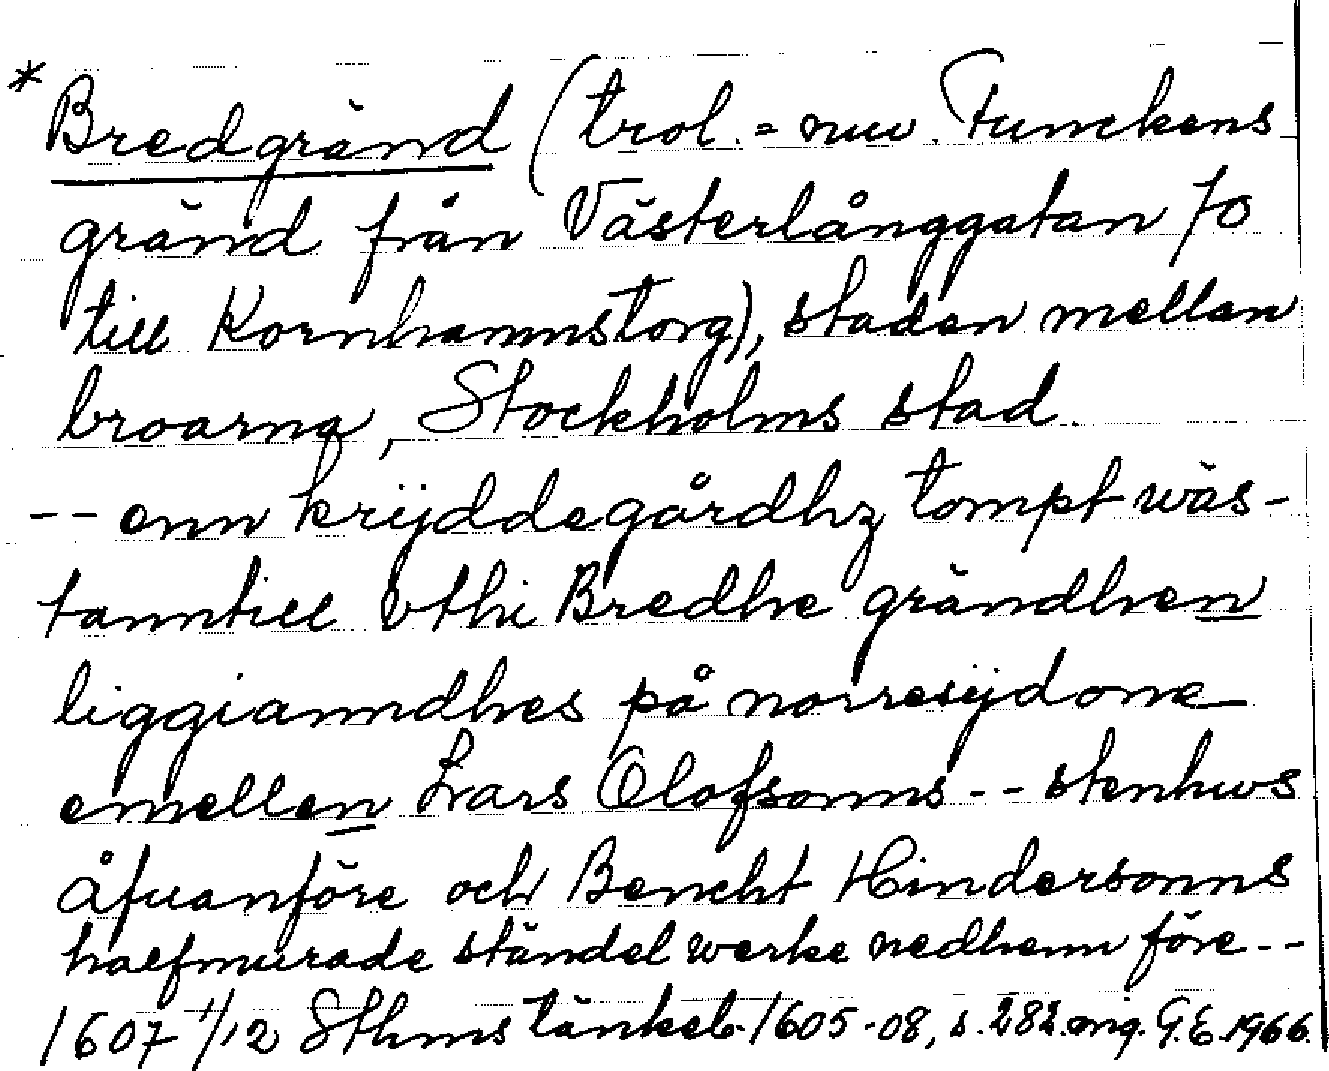 * Bredgränd (trol. = nuv. Funckens
gränd från Västerlånggatan 70
till Kornhamnstorg), staden mellan
broarna, Stockholms stad.
-- enn krÿddegårdhz tompt wäs-
tanntill vthi Bredhe grändhen
liggianndhes på norresÿdone
emellen Lars Olofsonns -- stenhws
åfuanföre och Bencht Hindersonns
halfmurade ständelwerke nedhenn före --
1607 1/12 Sthms tänkeb. 1605-08, s. 282. mig. G.E. 1966.